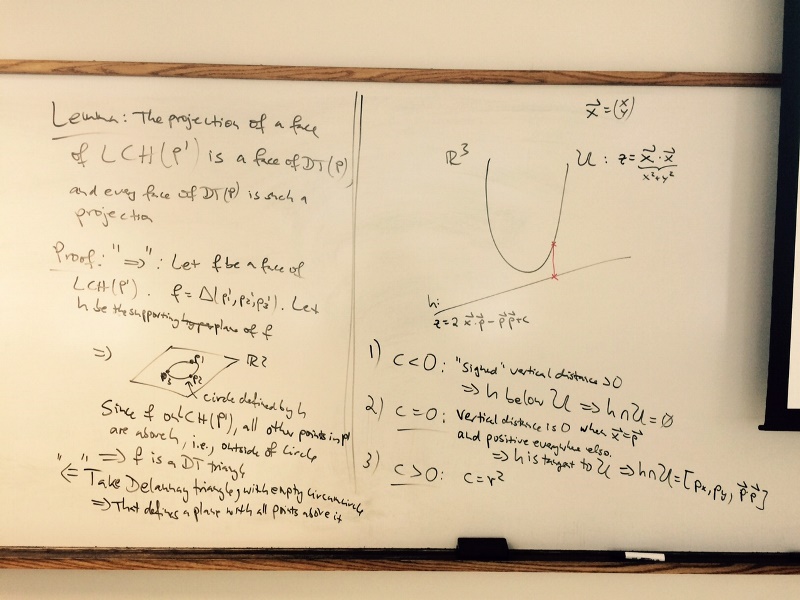 Lemma: The projection of a face
of LCH(P') is a face of DT(P)
and every face of DT(P) is such a
projection
Proof: "⇒": Let f be a face of
LCH(P'). f = Δ(p1', p2', p3'). Let
h be the supporting hyperplane of f
⇒
p1
p3
p2
R2
circle defined by h
Since f on LCH(P'), all other points in P'
are above h, i.e., outside of circle
⇒ f is a DT triangle
"⇐" Take Delaunay triangle, with empty circumcircle
⇒ That defines a plane with all points above it
x⃗ = (x y)
ℝ³
U : z = x⃗ · x⃗
x²+y²
h:
z = 2 x⃗ · p⃗ − p⃗ p⃗ + c
1) c < 0 : "signed" vertical distance > 0
⇒ h below U ⇒ h ∩ U = ∅
2) c = 0 : vertical distance is 0 when x⃗ = p⃗
and positive everywhere else.
⇒ h is tangent to U ⇒ h ∩ U = [px, py, p⃗ p⃗]
3) c > 0 : c = r²